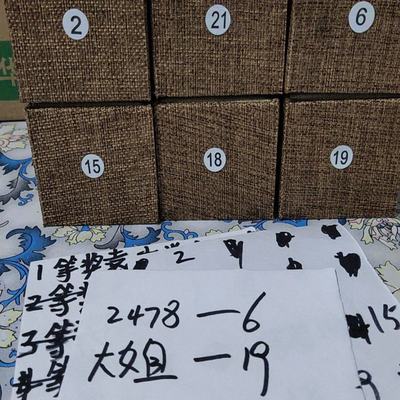 2 21 6
15 18 19
1等奖 2
2等
3等 15
等
2478 — 6
大姐 — 19